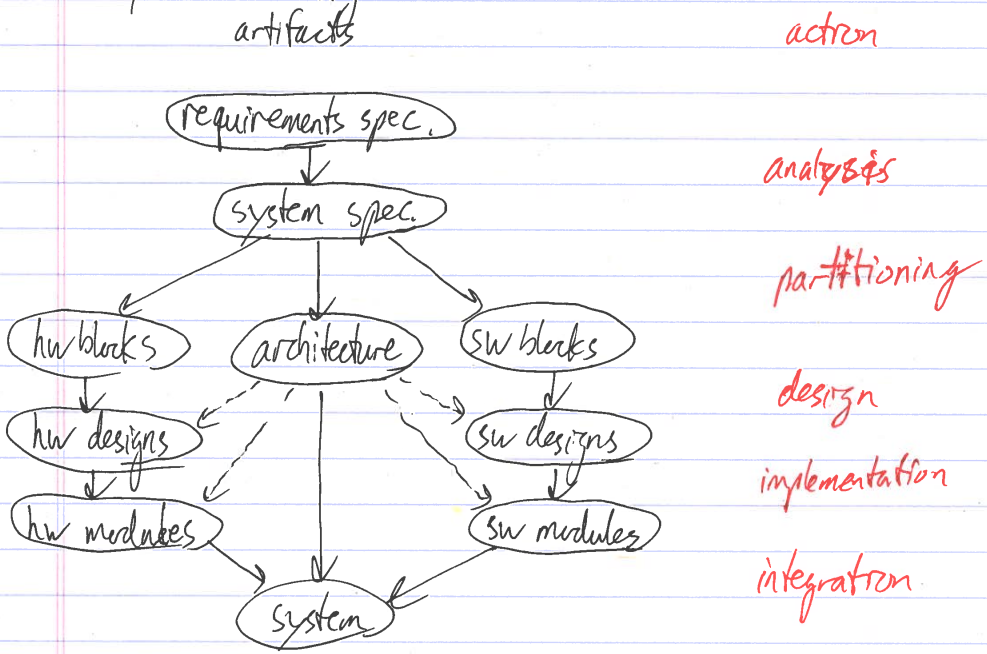 artifacts action
requirements spec.
analysis
system spec.
partitioning
hw blocks architecture sw blocks
design
hw designs sw designs
implementation
hw modules sw modules
integration
system